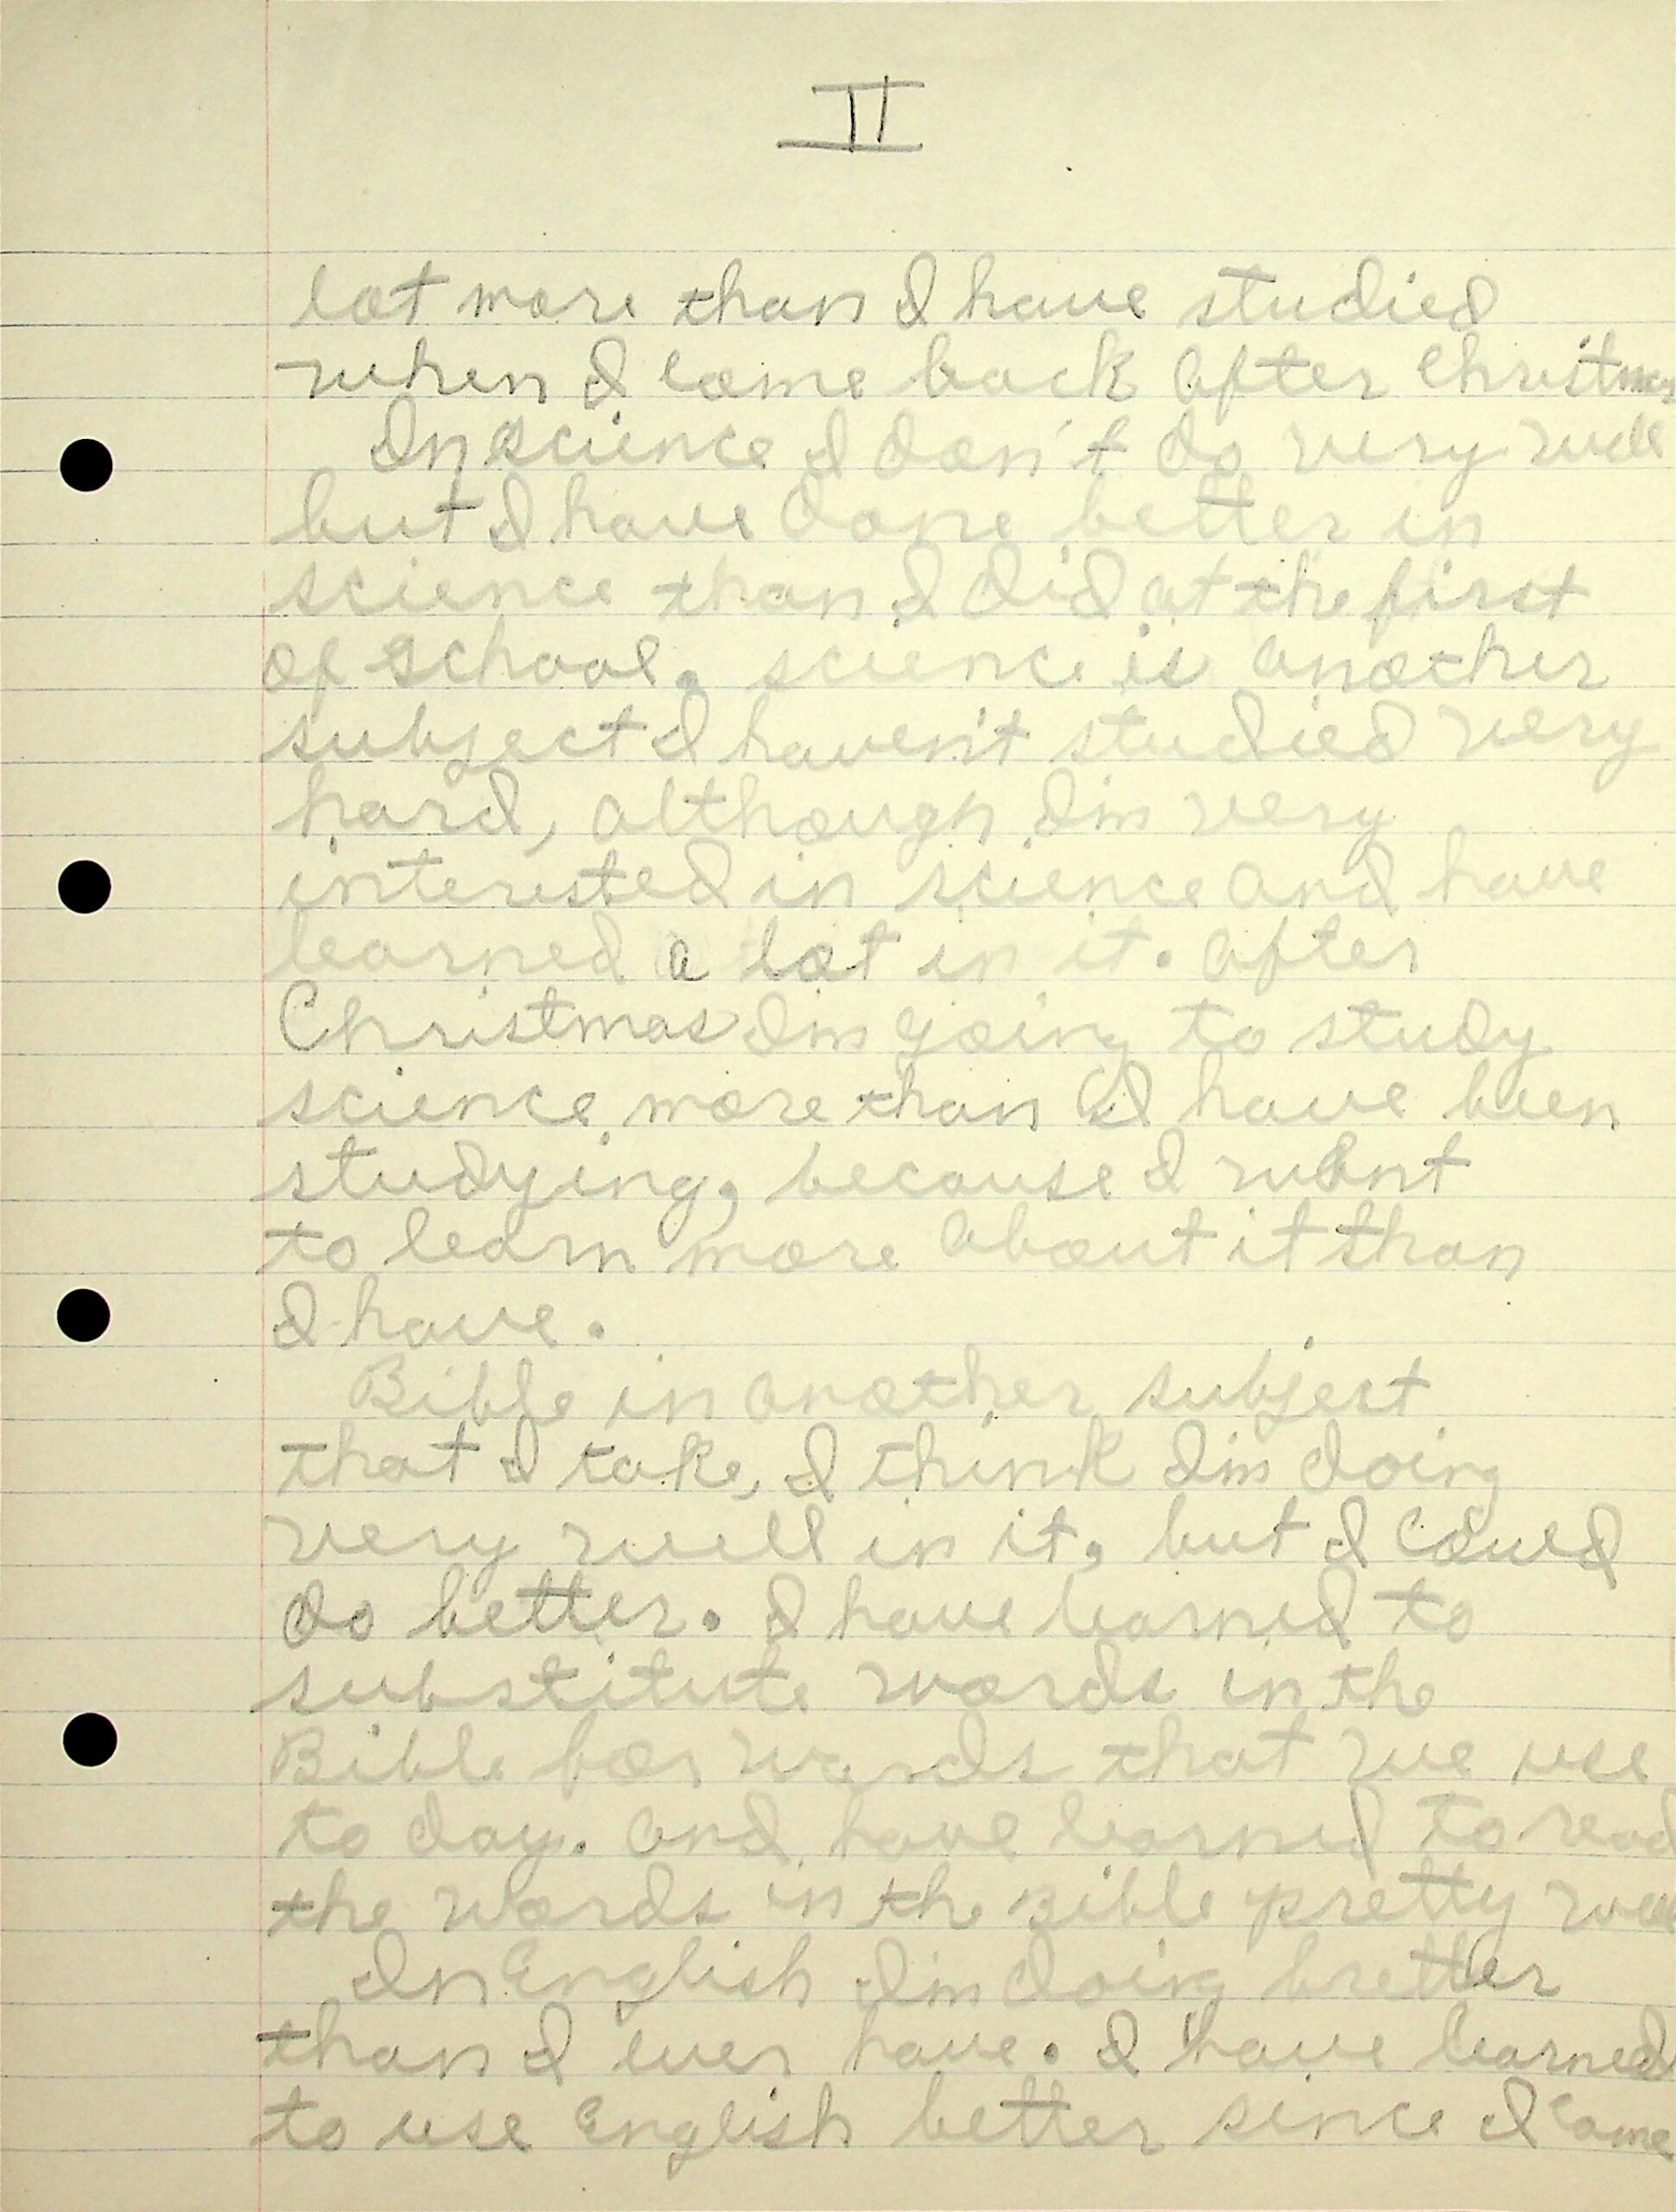 II
lot more than I have studied
when I come back after Christmas
In science I don't do very well
but I have done better in
science than I did at the first
of school. science is another
subject I haven't studied very
hard, although I'm very
interested in science and have
learned a lot in it. after
Christmas I'm going to study
science more than I have been
studying, because I want
to learn more about it than
I have.
Bible in another subject
that I take, I think I'm doing
very well in it, but I could
do better. I have learned to
substitute words in the
Bible for words that we use
to day. and have learned to read
the words in the Bible pretty well
In English I'm doing bretter
than I ever have. I have learned
to use English better since I came